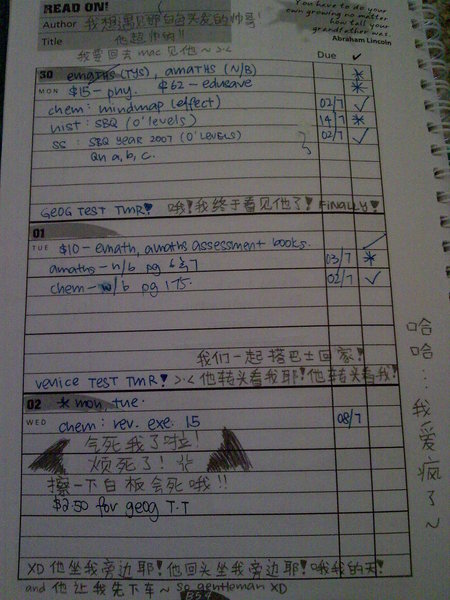 READ ON!
You have to do your
own growing no matter
how tall your
grandfather was.
Abraham Lincoln
Author 我想遇见那白马头发的帅哥!
Title 他超帅的!!
我要回去 mac 见他~ >.<
Due ✓
30 emaths (TYS), amaths (N/B) *
MON $15 - phy. $62 - edusave *
chem: mindmap (effect) 02/7 ✓
hist: SBQ (O'levels) 14/7 *
SS: SBQ YEAR 2007 (O'LEVELS) 02/7 ✓
Qn a, b, c.
GEOG TEST TMR! 哦!我终于看见他了! FINALLY!
01
TUE $10 - emath, amaths assessment books. ✓
amaths - n/b pg 6&7 03/7 *
chem - w/b pg 175. 02/7 ✓
我们一起搭巴士回家!
venice TEST TMR! >.< 他转头看我耶!他转头看我!
02 * mon, tue.
WED chem: rev. exe. 15 08/7
气死我了啦!
烦死了!
擦一下白板会死哦!!
$2.50 for geog T.T
XD 他坐我旁边耶!他回头坐我旁边耶!哦我的天!
and 他让我先下车~ so gentleman XD
哈哈...我爱疯了~